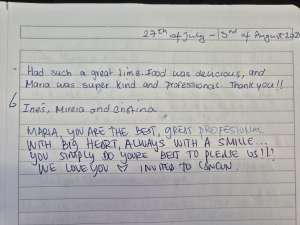 27th of July - 3nd of August 202
Had such a great time. Food was delicious, and
Maria was super kind and professional. Thank you!!
Ines, Mireia and Cristina
MARIA, YOU ARE THE BEST, GREAT PROFESIONAL
WITH BIG HEART, ALWAYS WITH A SMILE...
YOU SIMPLY DO YOURE BEST TO PLEASE US!!!
WE LOVE YOU ♡ INVITED TO CANCUN